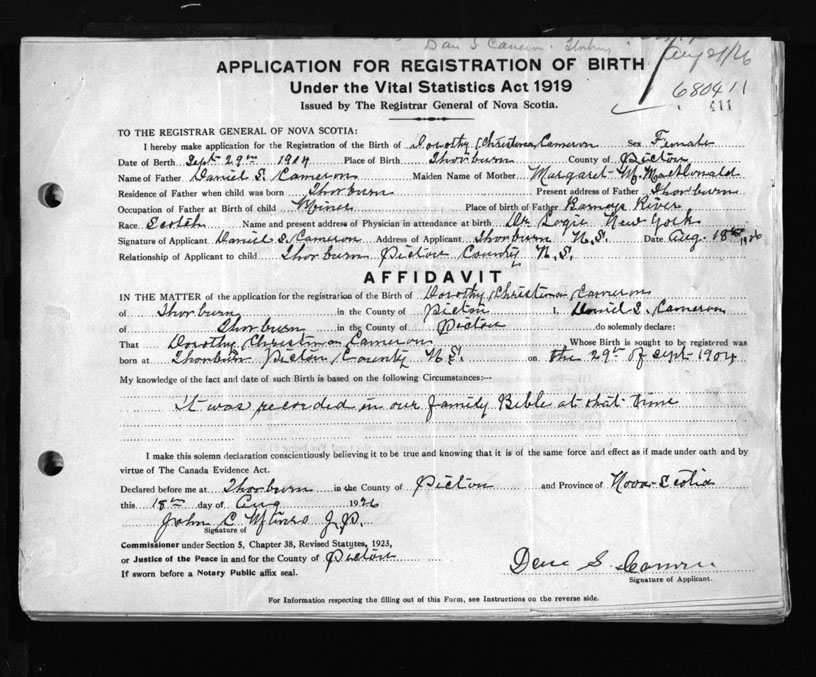 Dan S Cameron
Aug 21/26
APPLICATION FOR REGISTRATION OF BIRTH
Under the Vital Statistics Act 1919
680411
Issued by The Registrar General of Nova Scotia.
TO THE REGISTRAR GENERAL OF NOVA SCOTIA:
I hereby make application for the Registration of the Birth of Dorothy Christina Cameron Sex Female
Date of Birth Sept 29th 1904 Place of Birth Thorburn County of Pictou
Name of Father Daniel S. Cameron Maiden Name of Mother Margaret M. MacDonald
Residence of Father when child was born Thorburn Present address of Father Thorburn
Occupation of Father at Birth of child Miner Place of birth of Father Barneys River
Race. Scotch Name and present address of Physician in attendance at birth Dr Logie New York
Signature of Applicant Daniel S. Cameron Address of Applicant Thorburn N.S. Date Aug. 18th 1926
Relationship of Applicant to child Thorburn Pictou County N.S.
AFFIDAVIT
IN THE MATTER of the application for the registration of the Birth of Dorothy Christina Cameron
of Thorburn in the County of Pictou I, Daniel S. Cameron
of Thorburn in the County of Pictou do solemnly declare:
That Dorothy Christina Cameron Whose Birth is sought to be registered was
born at Thorburn Pictou County N.S. on the 29th of Sept 1904
My knowledge of the fact and date of such Birth is based on the following Circumstances:--
it was recorded in our family Bible at that time
I make this solemn declaration conscientiously believing it to be true and knowing that it is of the same force and effect as if made under oath and by
virtue of The Canada Evidence Act.
Declared before me at Thorburn in the County of Pictou and Province of Nova Scotia
this 18th day of Aug 1926
John C J.P.
Signature of
Commissioner under Section 5, Chapter 38, Revised Statutes, 1923,
or Justice of the Peace in and for the County of Pictou
If sworn before a Notary Public affix seal.
Dan S. Cameron
Signature of Applicant.
For Information respecting the filling out of this Form, see Instructions on the reverse side.